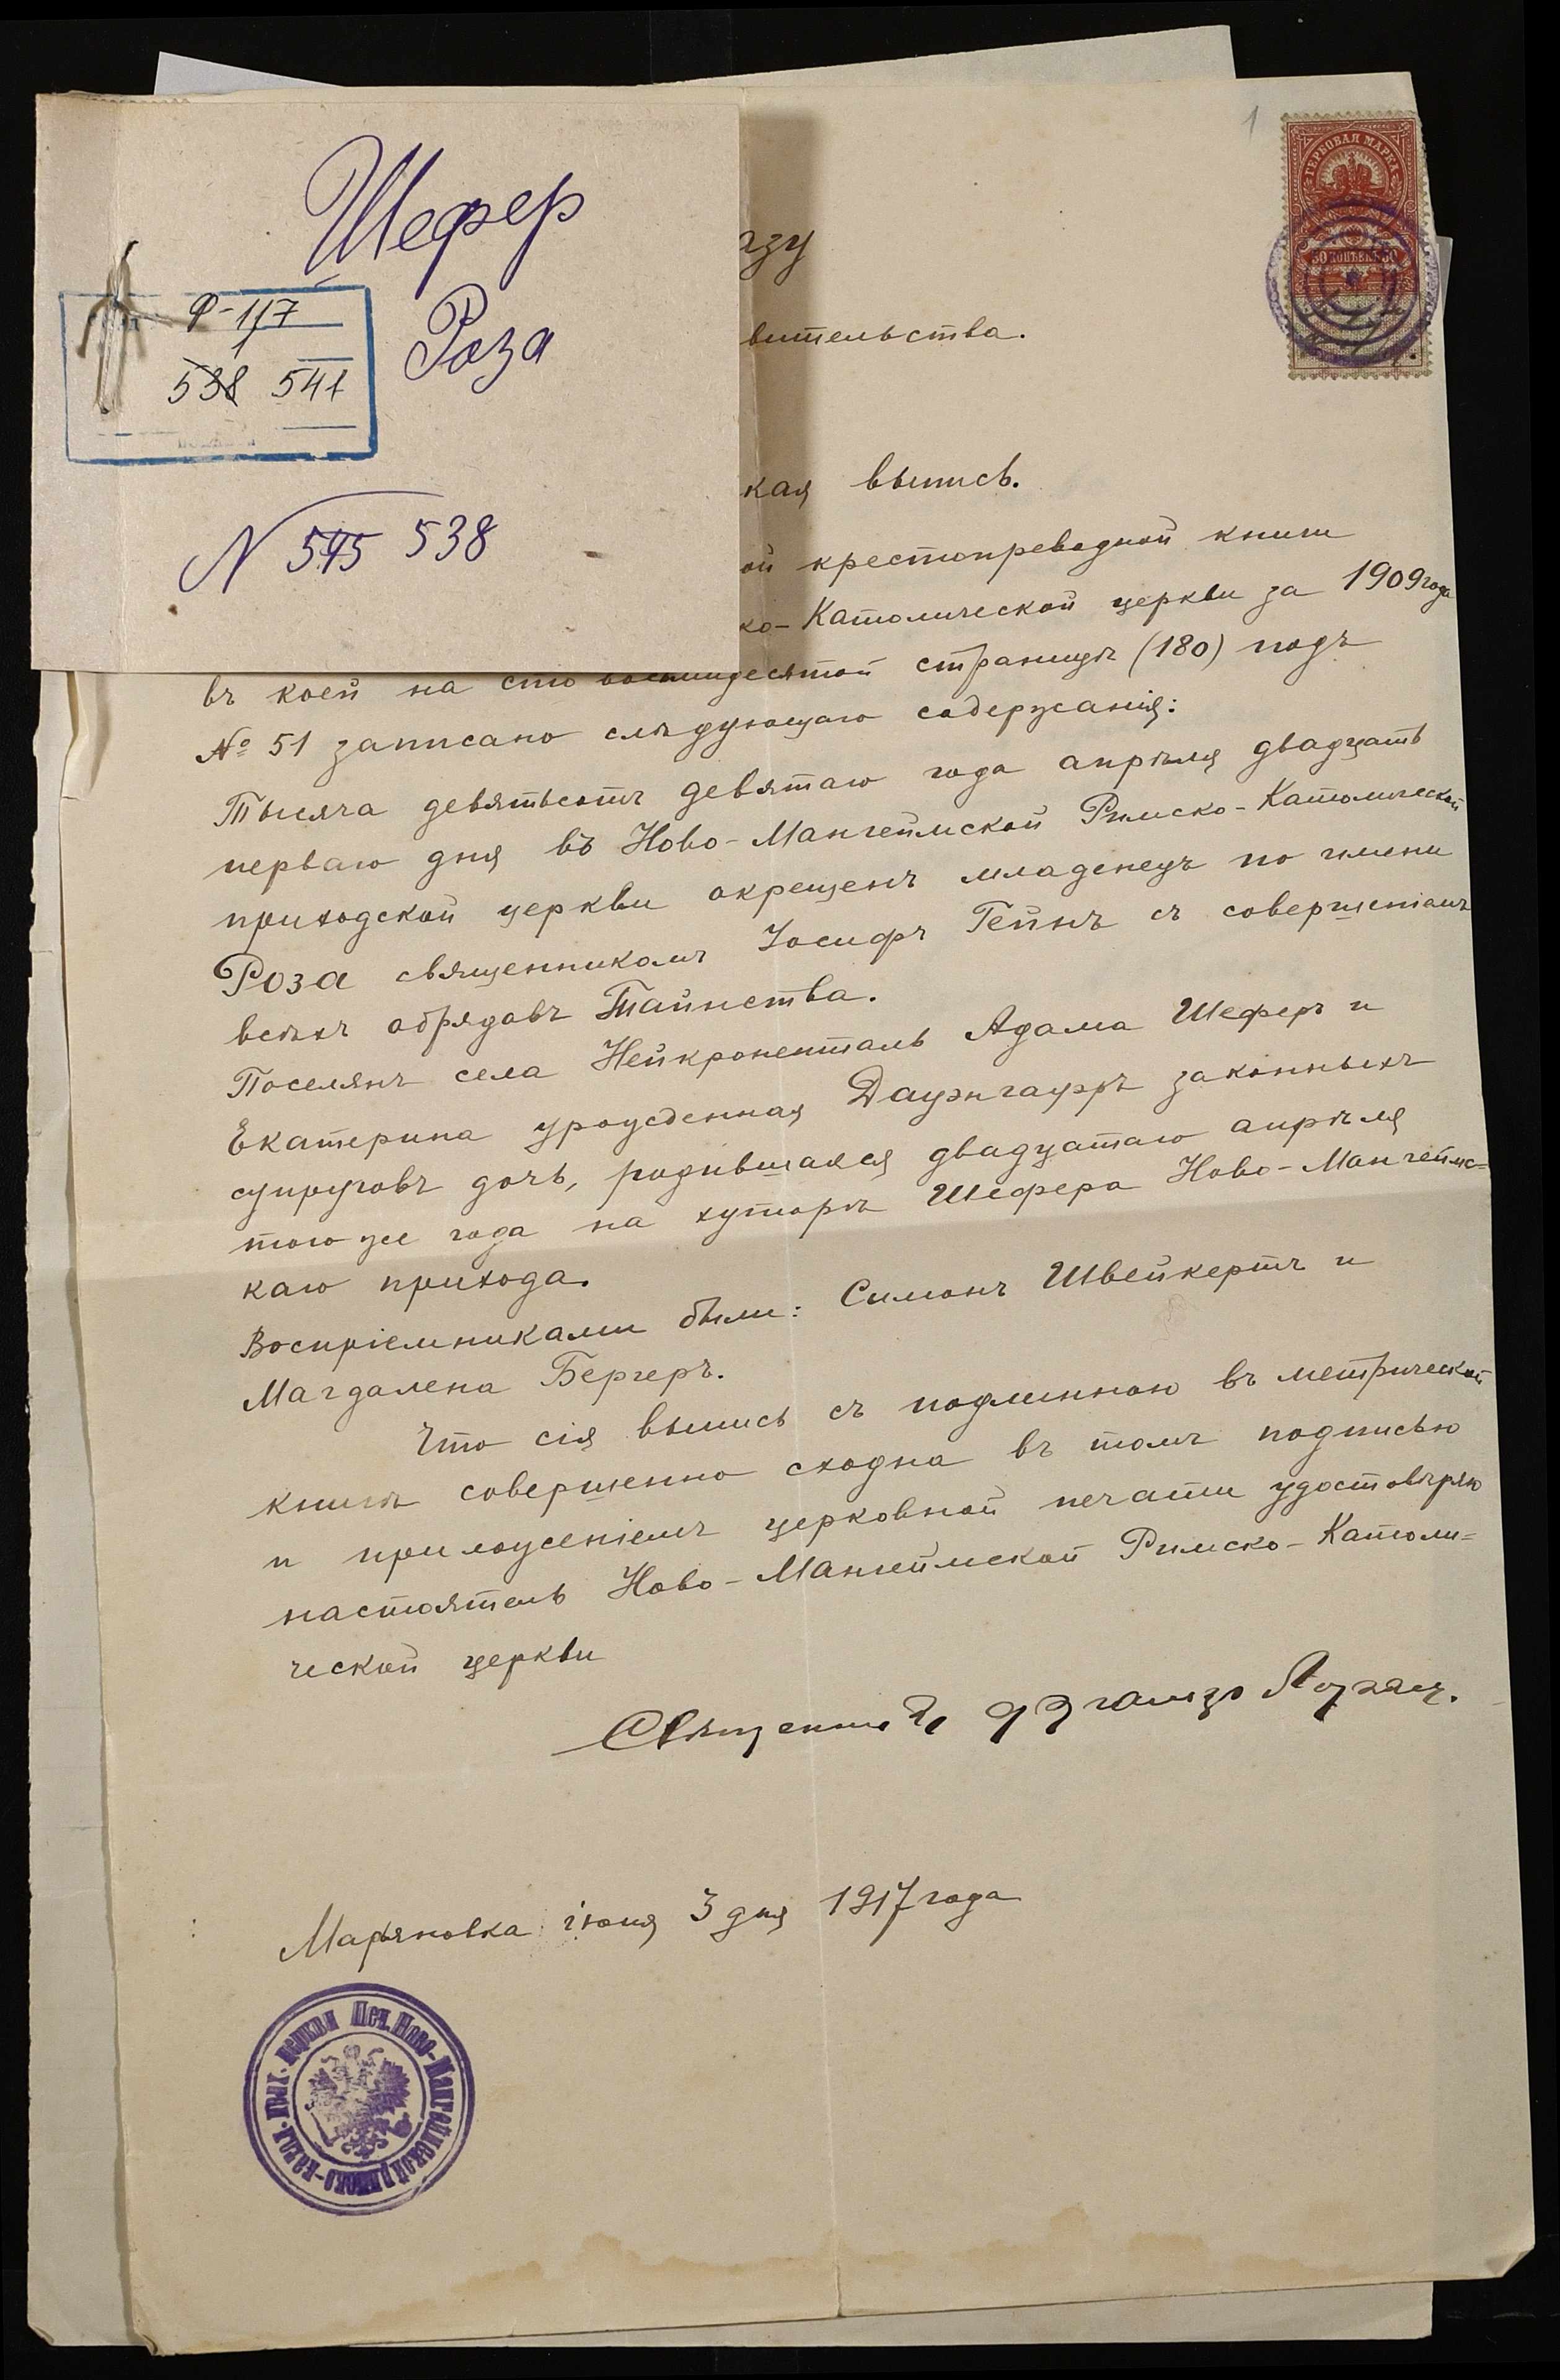 Шефер
Роза
Ф-117
538 541
N 545 538
1
ГЕРБОВАЯ МАРКА
азу
вительства.
кая выпись.
ой крестопреводной книги
ко-Католической церкви за 1909 года
въ коей на сто восьмидесятой страницѣ (180) подъ
№ 51 записано слѣдующаго содержанія:
Тысяча девятьсотъ девятаго года апрѣля двадцать
перваго дня въ Ново-Мангеймской Римско-Католической
приходской церкви окрещенъ младенецъ по имени
Роза священникомъ Іосифъ Гейнъ съ совершеніемъ
всѣхъ обрядовъ Таинства.
Поселянъ села Нейкроненталь Адама Шеферъ и
Екатерина урожденная Дауэнгауэръ законныхъ
супруговъ дочь, родившаяся двадцатаго апрѣля
того же года на хуторѣ Шефера Ново-Мангеймс=
каго прихода.
Воспріемниками были: Симонъ Швейкертъ и
Магдалена Бергеръ.
Что сія выпись съ подлинною въ метрической
книгѣ совершенно сходна въ томъ подписью
и приложеніемъ церковной печати удостовѣряю
настоятель Ново-Мангеймской Римско-Католи=
ческой церкви
Священникъ
Марьяновка іюня 3 дня 1917 года
Печ. Ново-Мангеймской римско-катол. прих. церкви